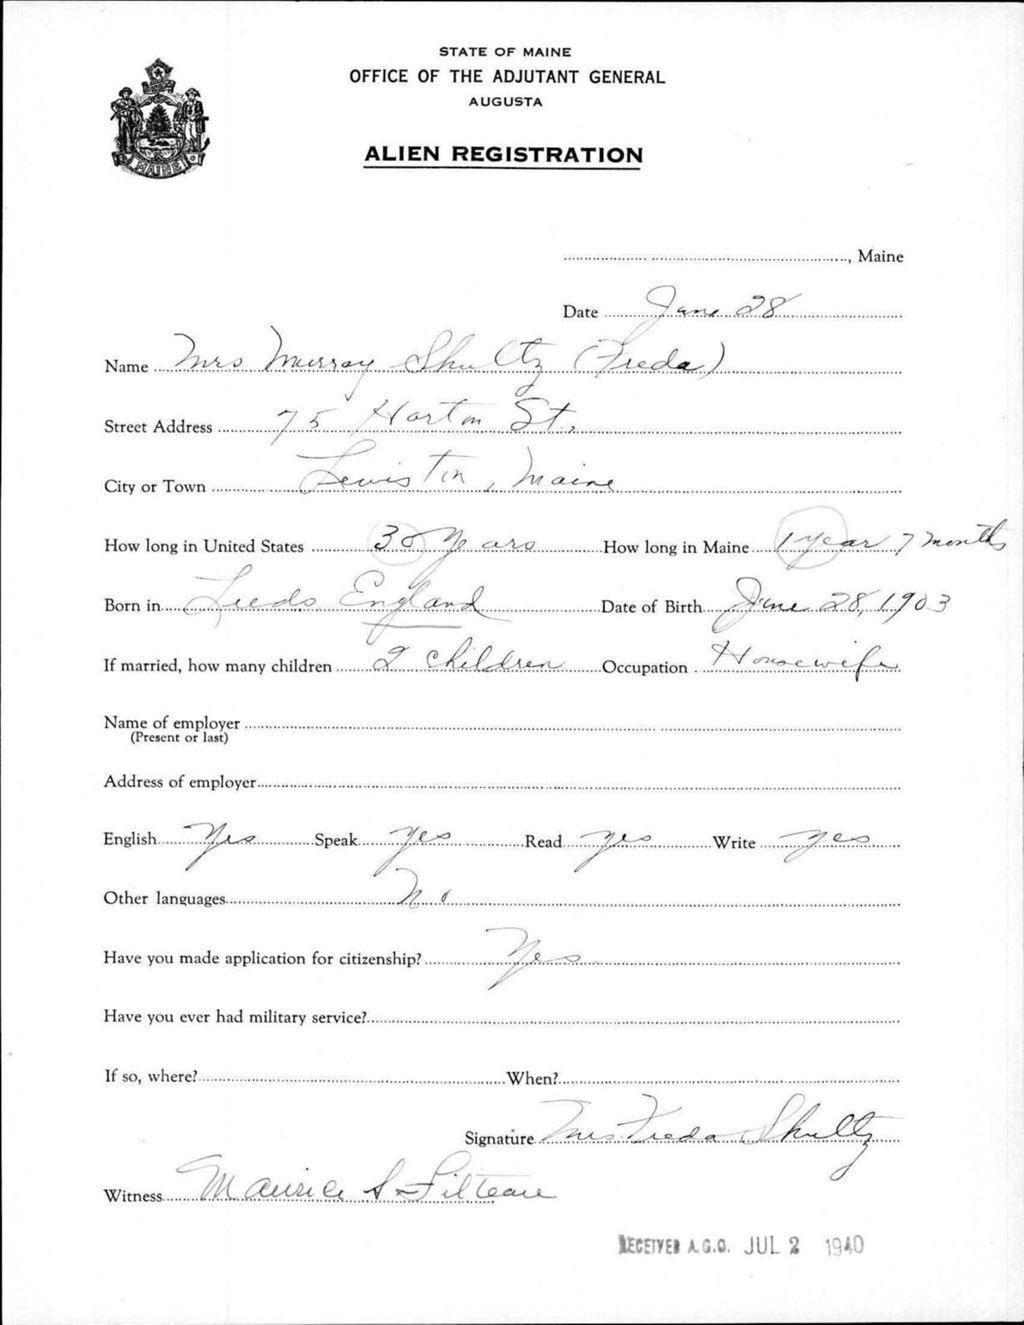 STATE OF MAINE
OFFICE OF THE ADJUTANT GENERAL
AUGUSTA
ALIEN REGISTRATION
MAINE
, Maine
Date June 28
Name Mrs Murray Shultz (Freda)
Street Address 75 Horton St.
City or Town Lewiston, Maine
How long in United States 30 Years How long in Maine 1 year 7 months
Born in Leeds England Date of Birth June 28, 1903
If married, how many children 2 children Occupation Housewife
Name of employer
(Present or last)
Address of employer
English Yes Speak yes Read yes Write yes
Other languages No
Have you made application for citizenship? Yes
Have you ever had military service?
If so, where? When?
Signature Mrs Freda Shultz
Witness Maurice S Filteau
RECEIVED A.G.O. JUL 2 1940